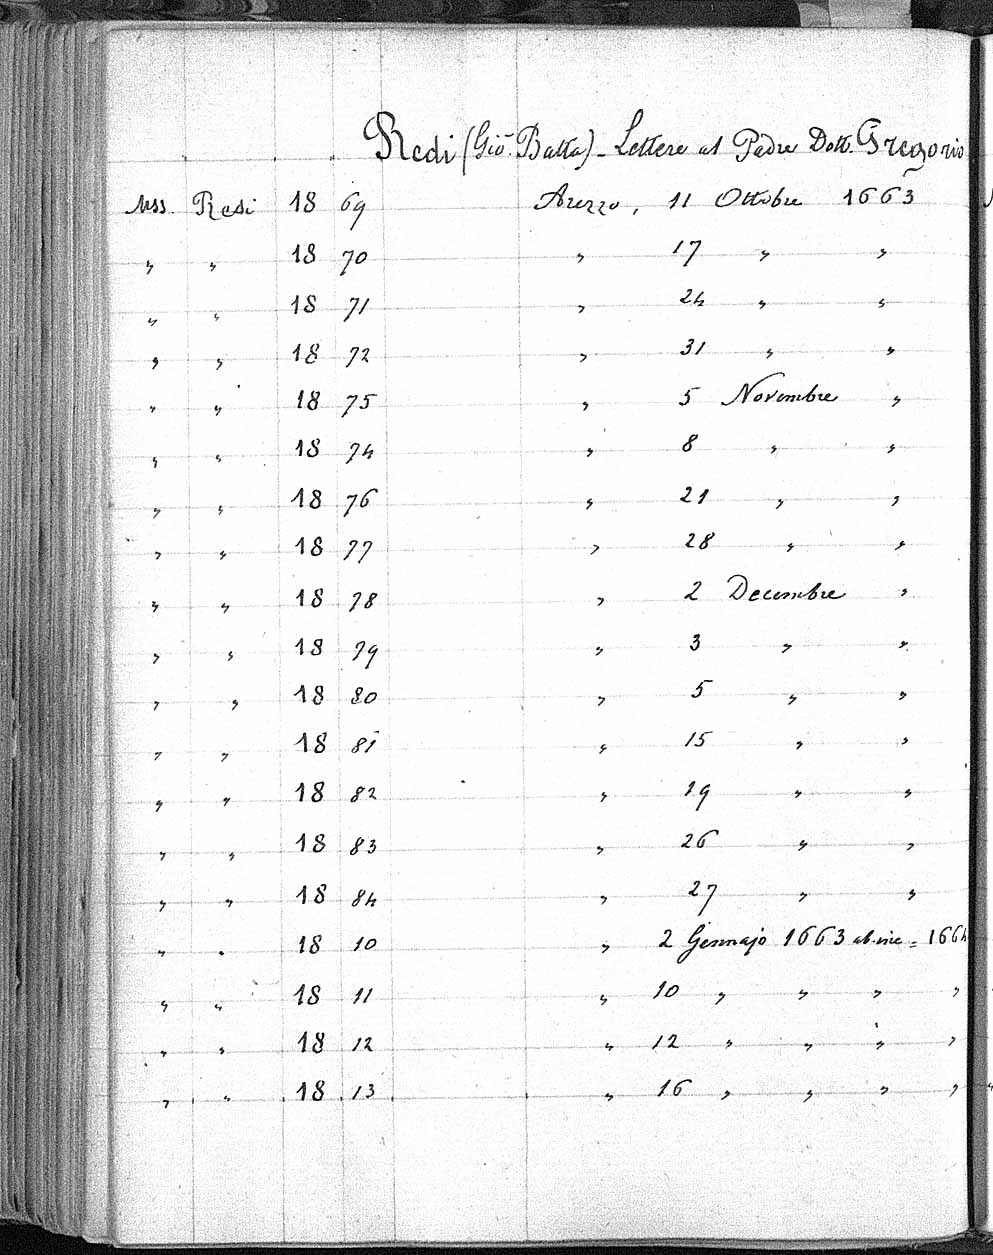 Redi (Gio. Batta) - Lettere al Padre Dott. Gregorio
Mss. Redi 18 69 Arezzo, 11 Ottobre 1663
" " 18 70 " 17 " "
" " 18 71 " 24 " "
" " 18 72 " 31 " "
" " 18 75 " 5 Novembre "
" " 18 74 " 8 " "
" " 18 76 " 21 " "
" " 18 77 " 28 " "
" " 18 78 " 2 Decembre "
" " 18 79 " 3 " "
" " 18 80 " 5 " "
" " 18 81 " 15 " "
" " 18 82 " 19 " "
" " 18 83 " 26 " "
" " 18 84 " 27 " "
" " 18 10 " 2 Gennajo 1663 ab inc = 1664
" " 18 11 " 10 " " " "
" " 18 12 " 12 " " " "
" " 18 13 " 16 " " " "